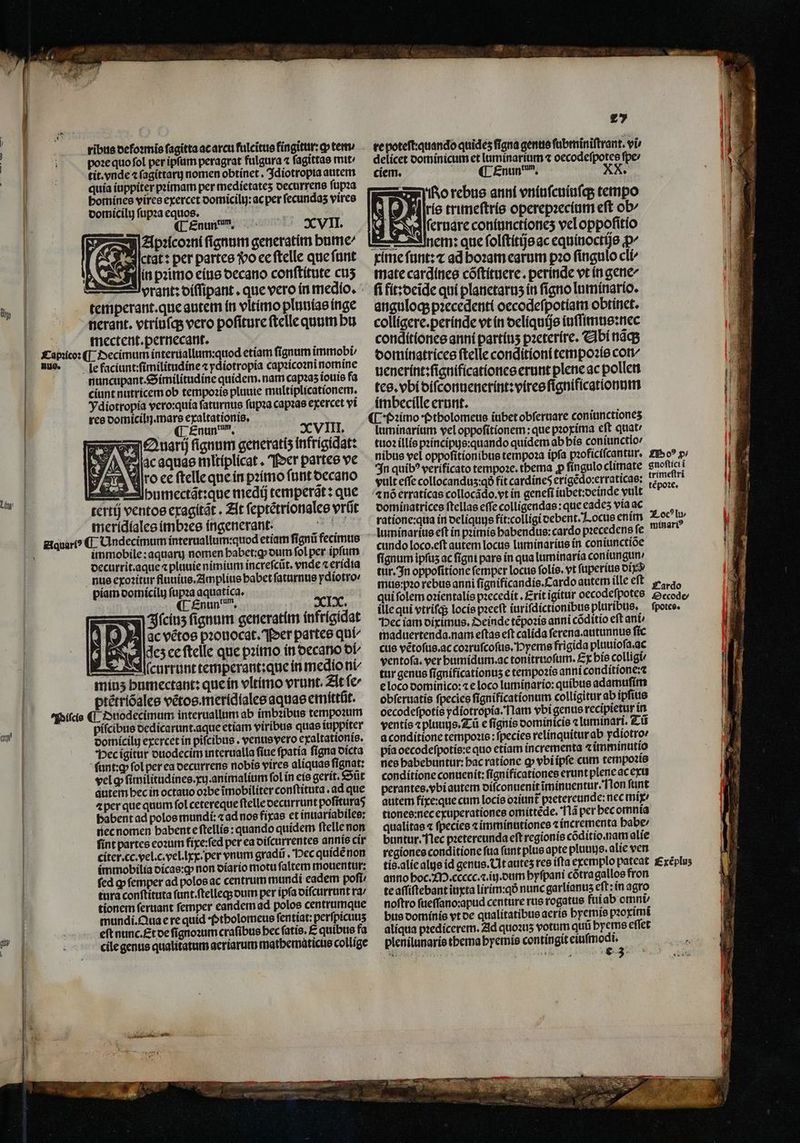 27
ribus deformis sagitta ac arcu fulcitus fingitur: ꝙ tem⸗
pore quo sol per ipsum peragrat fulgura ⁊ sagittas mit⸗
tit. vnde ⁊ sagittarij nomen obtinet. Idiotropia autem
quia iuppiter primam per medietateʒ decurrens supra
homines vires exercet domicilij: ac per secundaʒ vires
domicilij supra equos.
¶ Enuntᵘᵐ. XVII.
Apricorni signum generatim hume⸗
ctat: per partes ꝟo ec stelle que sunt
in primo eius decano constitute cuʒ
vrant: dissipant. que vero in medio.
temperant. que autem in vltimo pluuias inge
nerant. vtriusqꝫ vero positure stelle quum hu
mectent. pernecant.
Capricor⸗
nus.
¶ Decimum interuallum: quod etiam signum immobi⸗
le faciunt: similitudine ⁊ ydiotropia capricorni nomine
nuncupant. Similitudine quidem. nam capras iouis fa
ciunt nutricem ob tempozis pluuie multiplicationem.
Ydiotropia vero: quia saturnus supra capras exercet vi
res domicilij. mars exaltationis.
¶ Enuntᵘᵐ. XVIII.
Quarij signum generatis infrigidat:
ac aquas mltiplicat. Per partes ve
ro ec stelle que in primo sunt decano
humectāt: que medij temperāt: que
tertij ventos exagitāt. At septētrionales vrūt
meridiales imbres ingenerant.
Aquariꝰ
¶ Undecimum interuallum: quod etiam signū fecimus
immobile: aquarij nomen habet: ꝙ dum sol per ipsum
decurrit. aque ⁊ pluuie nimium increscūt. vnde ⁊ eridia
nus exoritur fluuius. Amplius habet saturnus ydiotro⸗
piam domicilij supra aquatica.
¶ Enuntᵘᵐ. XIX.
Isciuʒ signum generatim infrigidat
ac vētos prouocat. Per partes qui⸗
deʒ ec stelle que primo in decano di⸗
scurrunt temperant: que in medio ni⸗
mius humectant: que in vltimo vrunt. At se⸗
ptētriōales vētos. meridiales aquas emittūt.
Piscis
¶ Duodecimum interuallum ab imbribus temporum
piscibus dedicarunt. aque etiam viribus quas iuppiter
domicilij exercet in piscibus. venus vero exaltationis.
Hec igitur duodecim interualla siue spatia signa dicta
sunt: ꝙ sol per ea decurrens nobis vires aliquas signat:
vel ꝙ similitudines. xij. animalium sol in eis gerit. Sūt
autem hec in octauo orbe īmobiliter constituta. ad que
⁊ per que quum sol cetereque stelle decurrunt posituraʒ
habent ad polos mundi: ⁊ ad nos fixas et inuariabiles:
nec nomen habent e stellis: quando quidem stelle non
sint partes eorum fixe: sed per ea discurrentes annis cir
citer. cc. vel. c. vel. lxx. per vnum gradū. Hec quidē non
immobilia dicas: ꝙ non diario motu saltem mouentur:
sed ꝙ semper ad polos ac centrum mundi eadem posi⸗
tura constituta sunt. stelleqꝫ dum per ipsa discurrunt ra⸗
tionem seruant semper eandem ad polos centrumque
mundi. Qua e re quid Ptholomeus sentiat: perspicuuʒ
est nunc. Et de signorum crasibus hec satis. E quibus fa
cile genus qualitatum aeriarum mathematicus collige
re potest: quando quideʒ signa genus subministrant. vi⸗
delicet dominicum et luminarium ⁊ oecodespotes spe⸗
ciem.
¶ Enuntᵘᵐ. XX.
Ro rebus anni vniuscuiusqꝫ tempo
ris trimestris opereprecium est ob⸗
seruare coniunctioneʒ vel oppositio
nem: que solstitijs ac equinoctijs ꝓ⸗
xime sunt: ⁊ ad horam earum pro singulo cli⸗
mate cardines cōstituere. perinde vt in gene⸗
si fit: deīde qui planetaruʒ in signo luminario.
anguloqꝫ precedenti oecodespotiam obtinet.
colligere. perinde vt in deliquijs iussimus: nec
conditiones anni partiuʒ preterire. Ubi nāqꝫ
dominatrices stelle conditioni temporis con⸗
uenerint: significationes erunt plene ac pollen
tes. vbi disconuenerint: vires significationum
imbecille erunt.
¶ Primo Ptholomeus iubet obseruare coniunctioneʒ
luminarium vel oppositionem: que proxima est quat⸗
tuor illis principijs: quando quidem ab his coniunctio⸗
nibus vel oppositionibus tempora ipsa proficiscantur.
In quibꝰ verificato tempore. thema ꝓ singulo climate
vult esse collocanduʒ: qď fit cardineʒ erigēdo: erraticas:
⁊ nō erraticas collocādo. vt in genesi iubet: deinde vult
dominatrices stellas esse colligendas: que eadeʒ via ac
ratione: qua in deliquijs fit: colligi debent. Locus enim
luminarius est in primis habendus: cardo precedens se
cundo loco. est autem locus luminarius in coniunctiōe
signum ipsuʒ ac signi pars in qua luminaria coniungun⸗
tur. In oppositione semper locus solis. vt superius dixi⸗
mus: pro rebus anni significandis. Cardo autem ille est
qui solem orientalis precedit. Erit igitur oecodespotes
ille qui vtrisqꝫ locis preest iurisdictionibus pluribus.
Hec iam diximus. Deinde tēporis anni cōditio est ani⸗
maduertenda. nam estas est calida serena. autunnus sic
cus vētosus. ac coruscosus. Hyems frigida pluuiosa. ac
ventosa. ver humidum. ac tonitruosum. Ex his colligi⸗
tur genus significationuʒ e temporis anni conditione: ⁊
e loco dominico: ⁊ e loco luminario: quibus adamussim
obseruatis species significationum colligitur ab ipsius
oecodespotis ydiotropia. Nam vbi genus recipietur in
ventis ⁊ pluuijs. Tū e signis dominicis ⁊ luminari. Tū
a conditione temporis: species relinquitur ab ydiotro⸗
pia oecodespotis: e quo etiam incrementa ⁊ imminutio
nes habebuntur: hac ratione ꝙ vbi ipse cum temporis
conditione conuenit: significationes erunt plene ac exu
perantes. vbi autem disconuenit īminuentur. Non sunt
autem fixe: que cum locis oriunť pretereunde: nec mix⸗
tiones: nec exuperationes omittēde. Nā per hec omnia
qualitas ⁊ species ⁊ imminutiones ⁊ incrementa habe⸗
buntur. Nec pretereunda est regionis cōditio. nam alie
regiones conditione sua sunt plus apte pluuijs. alie ven
tis. alie alijs id genus. Ut auteʒ res ista exemplo pateat
anno hoc. M. cccc. ⁊. iij. dum hyspani cōtra gallos fron
te assistebant iuxta lirim: qď nunc garlianuʒ est: in agro
nostro suessano: apud centure rus rogatus fui ab omni⸗
bus dominis vt de qualitatibus aeris hyemis proximi
aliqua predicerem. Ad quoruʒ votum quū hyems esset
plenilunaris thema hyemis contingit eiusmodi.
gnostici i
trimestri
tēpore.
Locꝰ lu⸗
minariꝰ
Cardo
Oecode⸗
spotes.
Exēplus
e 3